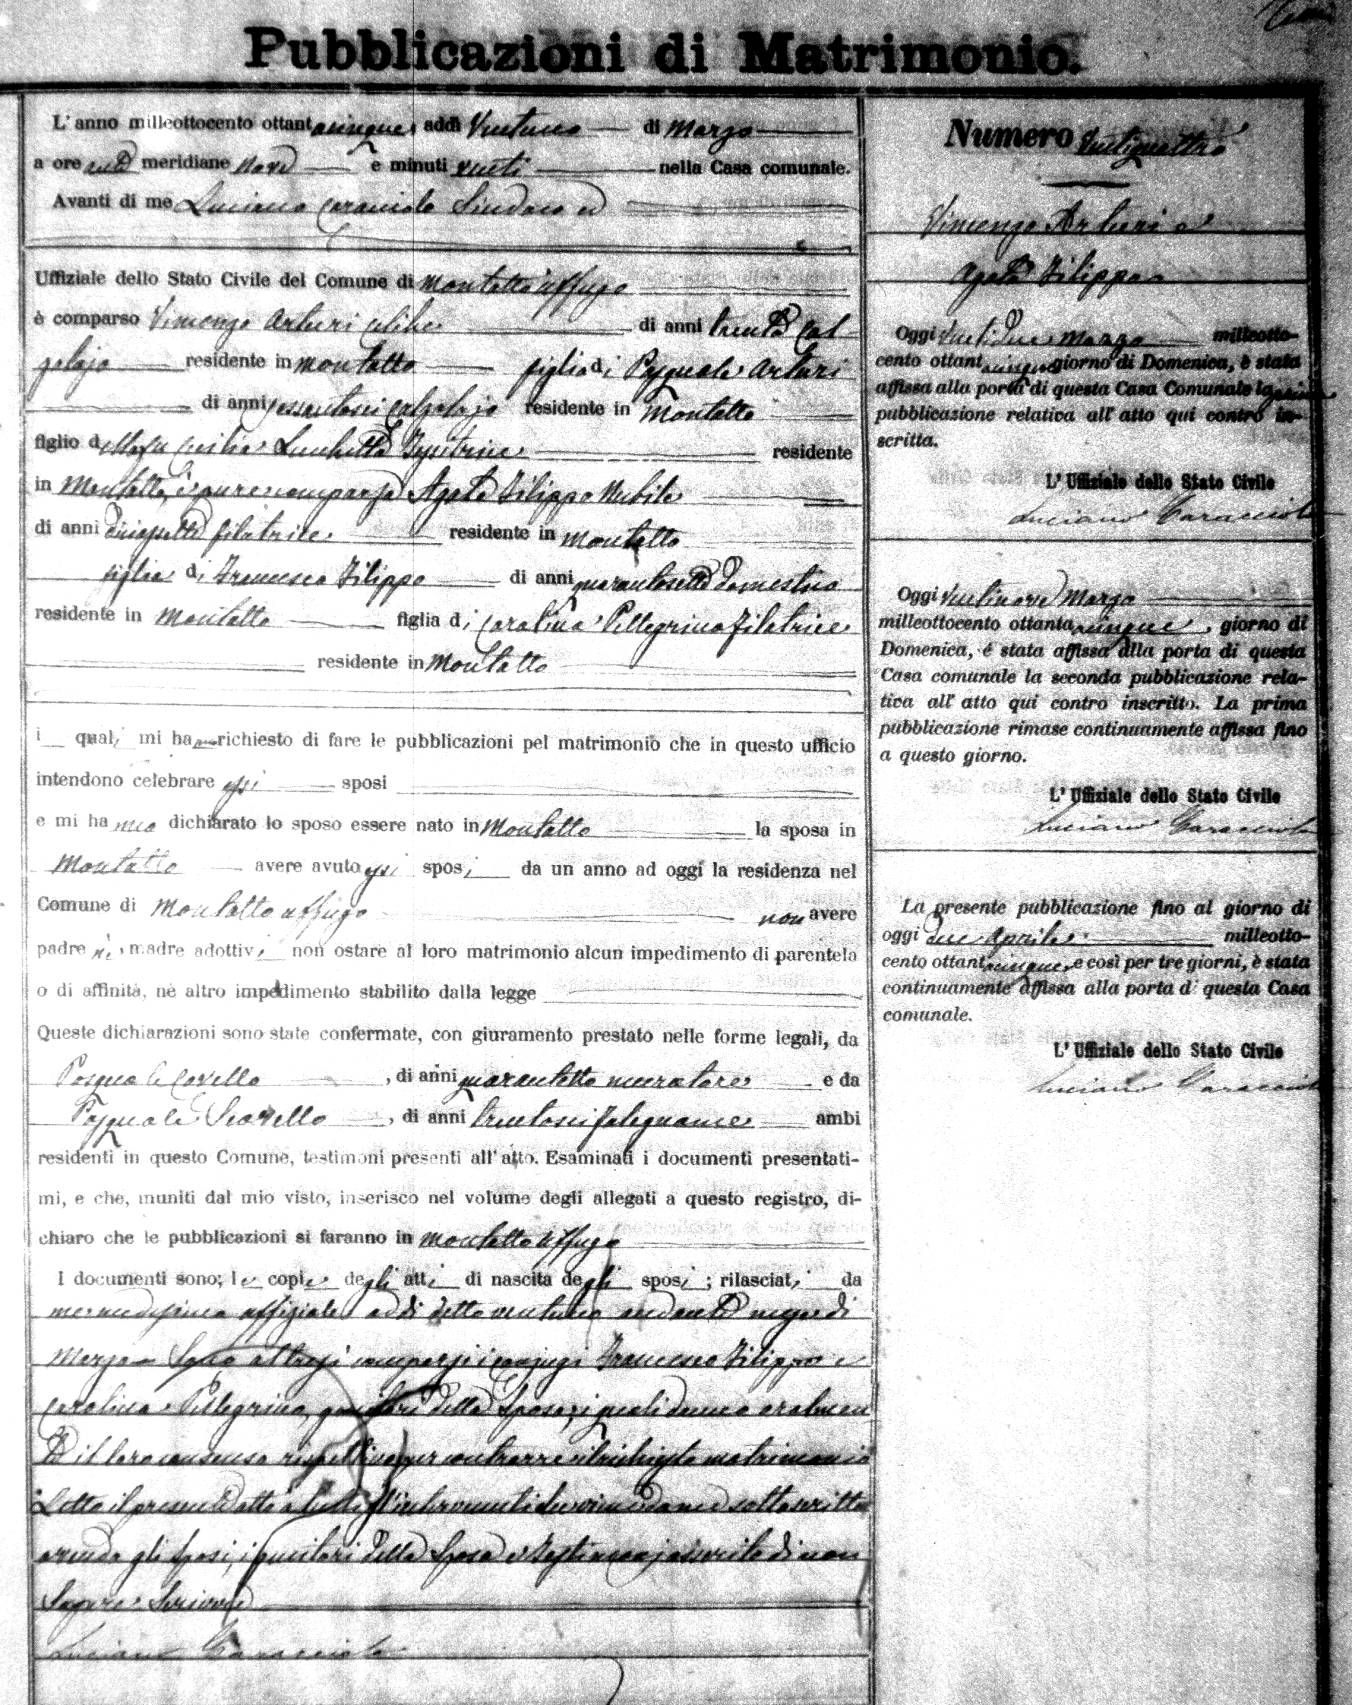 Pubblicazioni di Matrimonio.
L'anno milleottocento ottantacinque addì Ventuno di Marzo
a ore anti meridiane nove e minuti venti nella Casa comunale.
Avanti di me Luciano Caracciolo Sindaco ed
Uffiziale dello Stato Civile del Comune di Montalto Uffugo
è comparso Vincenzo Arturi celibe di anni trenta Cal
zolajo residente in Montalto figlio di Pasquale Arturi
di anni sessantasei calzolajo residente in Montalto
figlio della fu Cecilia Lucchetta Tessitrice residente
in Montalto, è pure comparsa Agata Filippo Nubile
di anni diciassette filatrice residente in Montalto
figlia di Francesco Filippo di anni quarantasette Domestico
residente in Montalto figlia di Carolina Pellegrino filatrice
residente in Montalto
i quali mi hanno richiesto di fare le pubblicazioni pel matrimonio che in questo ufficio
intendono celebrare essi sposi
e mi hanno dichiarato lo sposo essere nato in Montalto la sposa in
Montalto avere avuto essi sposi da un anno ad oggi la residenza nel
Comune di Montalto Uffugo non avere
padre nè madre adottivi non ostare al loro matrimonio alcun impedimento di parentela
o di affinità, nè altro impedimento stabilito dalla legge
Queste dichiarazioni sono state confermate, con giuramento prestato nelle forme legali, da
Pasquale Covello, di anni quarantotto muratore e da
Pasquale Scarvello, di anni trentasei falegname ambi
residenti in questo Comune, testimoni presenti all'atto. Esaminati i documenti presentati-
mi, e che, muniti dal mio visto, inserisco nel volume degli allegati a questo registro, di-
chiaro che le pubblicazioni si faranno in Montalto Uffugo
I documenti sono; le copie degli atti di nascita degli sposi; rilasciati da
me medesimo uffiziale addì detto ventuno andante mese di
Marzo Sono altresì comparsi i conjugi Francesco Filippo e
Carolina Pellegrino, genitori della Sposa, i quali danno oralmen
te il loro consenso per contrarre il richiesto matrimonio
Letto il presente atto a tutti gl'intervenuti da me sottoscritto
avendo gli sposi, i genitori della Sposa e Testimonj asserito di non
Sapere Scrivere
Luciano Caracciolo
Numero Ventiquattro
Vincenzo Arturi e
Agata Filippo
Oggi Ventidue Marzo milleotto-
cento ottantacinque giorno di Domenica, è stata
affissa alla porta di questa Casa Comunale la prima
pubblicazione relativa all'atto qui contro in-
scritta.
L'Uffiziale dello Stato Civile
Luciano Caracciolo
Oggi Ventinove Marzo
milleottocento ottantacinque, giorno di
Domenica, é stata affissa alla porta di questa
Casa comunale la seconda pubblicazione rela-
tiva all'atto qui contro inscritto. La prima
pubblicazione rimase continuamente affissa fino
a questo giorno.
L'Uffiziale dello Stato Civile
Luciano Caracciolo
La presente pubblicazione fino al giorno di
oggi due Aprile milleotto-
cento ottantacinque, e così per tre giorni, è stata
continuamente affissa alla porta di questa Casa
comunale.
L'Uffiziale dello Stato Civile
Luciano Caracciolo